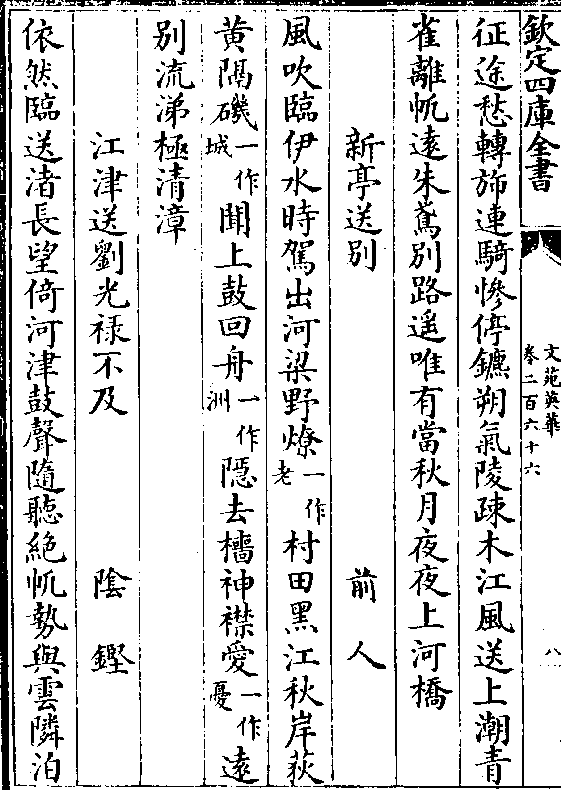 欽定四庫全書
文苑英華
卷二百六十六
八
征途愁轉斾連騎慘停鑣朔氣陵疎木江風送上潮青
雀離帆遠朱鳶別路遥唯有當秋月夜夜上河橋
新亭送別 前人
風吹臨伊水時駕出河梁野燎一作老村田黑江秋岸荻
黄隔磯一作城聞上鼓回舟一作洲隠去檣神襟愛一作憂遠
別流涕極清漳
江津送劉光禄不及 陰鏗
依然臨送渚長望倚河津鼓聲隨聽絶帆勢與雲隣泊